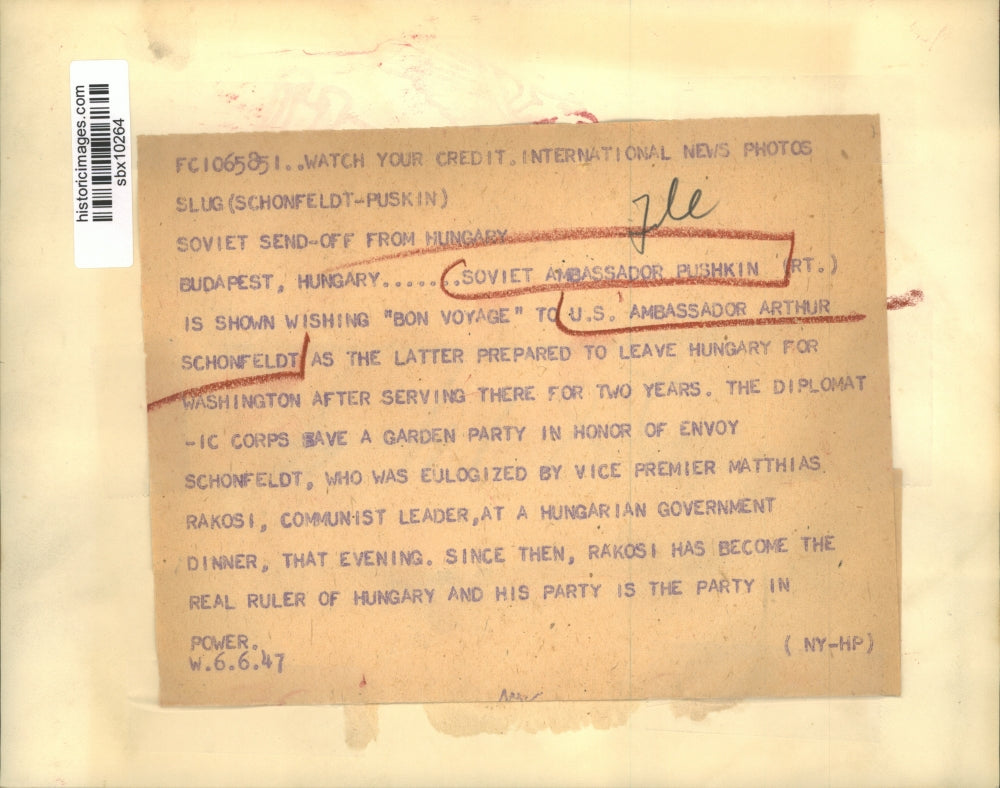 historicimages.com
sbx10264
FC1065851..WATCH YOUR CREDIT.INTERNATIONAL NEWS PHOTOS
SLUG(SCHONFELDT-PUSKIN)
SOVIET SEND-OFF FROM HUNGARY
BUDAPEST, HUNGARY.......SOVIET AMBASSADOR PUSHKIN (RT.)
IS SHOWN WISHING "BON VOYAGE" TO U.S. AMBASSADOR ARTHUR
SCHONFELDT AS THE LATTER PREPARED TO LEAVE HUNGARY FOR
WASHINGTON AFTER SERVING THERE FOR TWO YEARS. THE DIPLOMAT
-IC CORPS GAVE A GARDEN PARTY IN HONOR OF ENVOY
SCHONFELDT, WHO WAS EULOGIZED BY VICE PREMIER MATTHIAS
RAKOSI, COMMUNIST LEADER,AT A HUNGARIAN GOVERNMENT
DINNER, THAT EVENING. SINCE THEN, RAKOSI HAS BECOME THE
REAL RULER OF HUNGARY AND HIS PARTY IS THE PARTY IN
POWER.
W.6.6.47 (NY-HP)